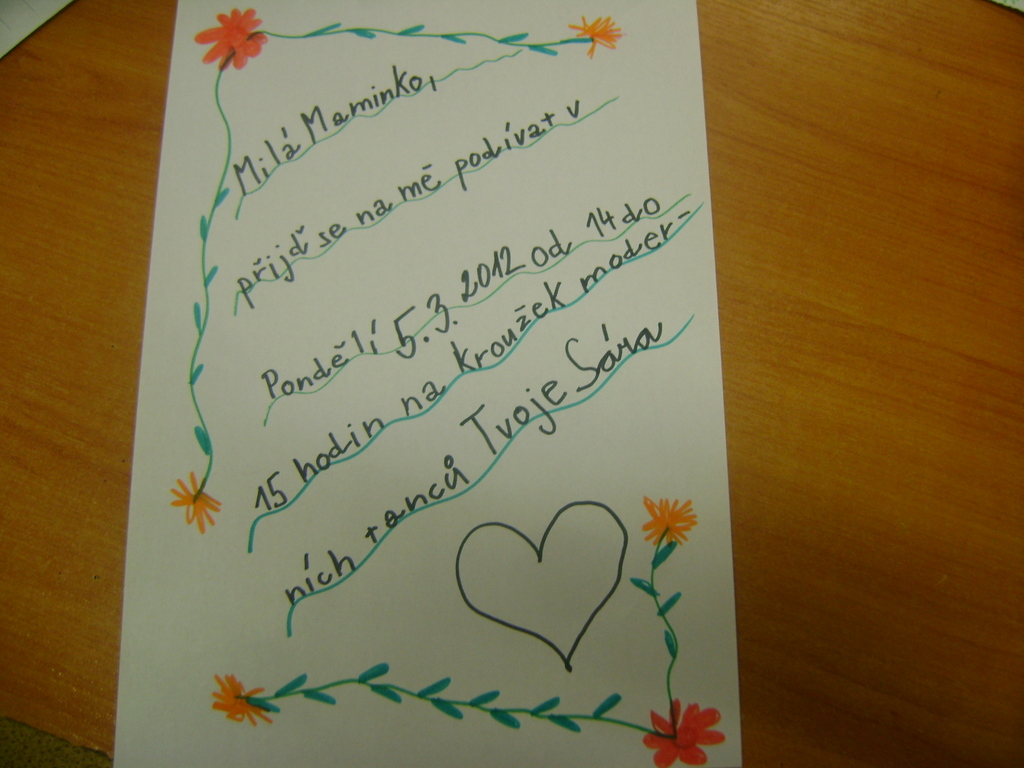 Milá Maminko,
přijď se na mě podívat v
Pondělí 5.3.2012 od 14 do
15 hodin na kroužek moder-
ních tanců Tvoje Sára